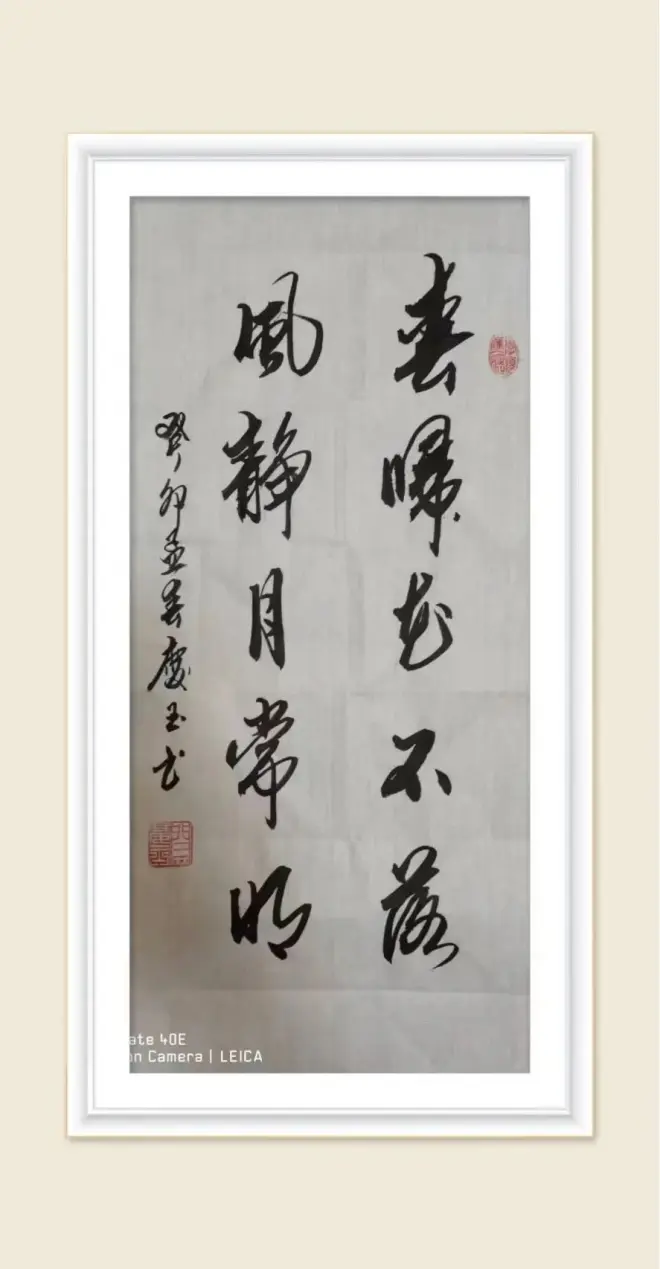 春歸花不落
風靜月常明
癸卯孟春慶玉书
ate 40E
on Camera | LEICA